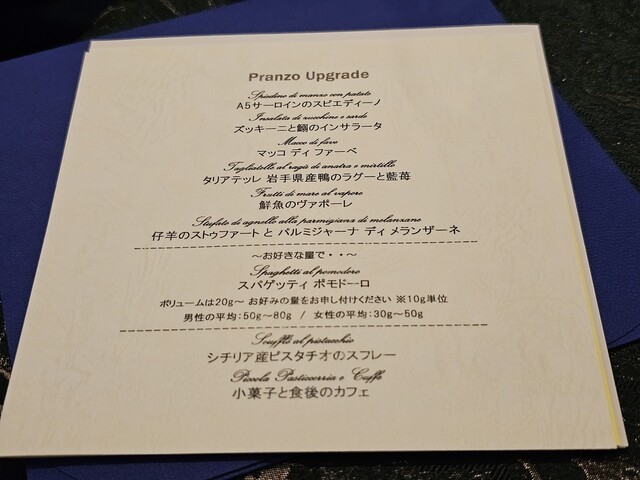 Pranzo Upgrade
Spiedino di manzo con patate
A5サーロインのスピエディーノ
Insalata di zucchine e sarde
ズッキーニと鰯のインサラータ
Macco di fave
マッコ ディ ファーベ
Tagliatelle al ragù di anatra e mirtillo
タリアテッレ 岩手県産鴨のラグーと藍苺
Frutti di mare al vapore
鮮魚のヴァポーレ
Stufato di agnello alla parmigiana di melanzane
仔羊のストゥファート と パルミジャーナ ディ メランザーネ
～お好きな量で・・～
Spaghetti al pomodoro
スパゲッティ ポモドーロ
ボリュームは20g～ お好みの量をお申し付けください ※10g単位
男性の平均:50g～80g / 女性の平均:30g～50g
Soufflè al pistacchio
シチリア産ピスタチオのスフレー
Piccola Pasticcerria e Caffe
小菓子と食後のカフェ